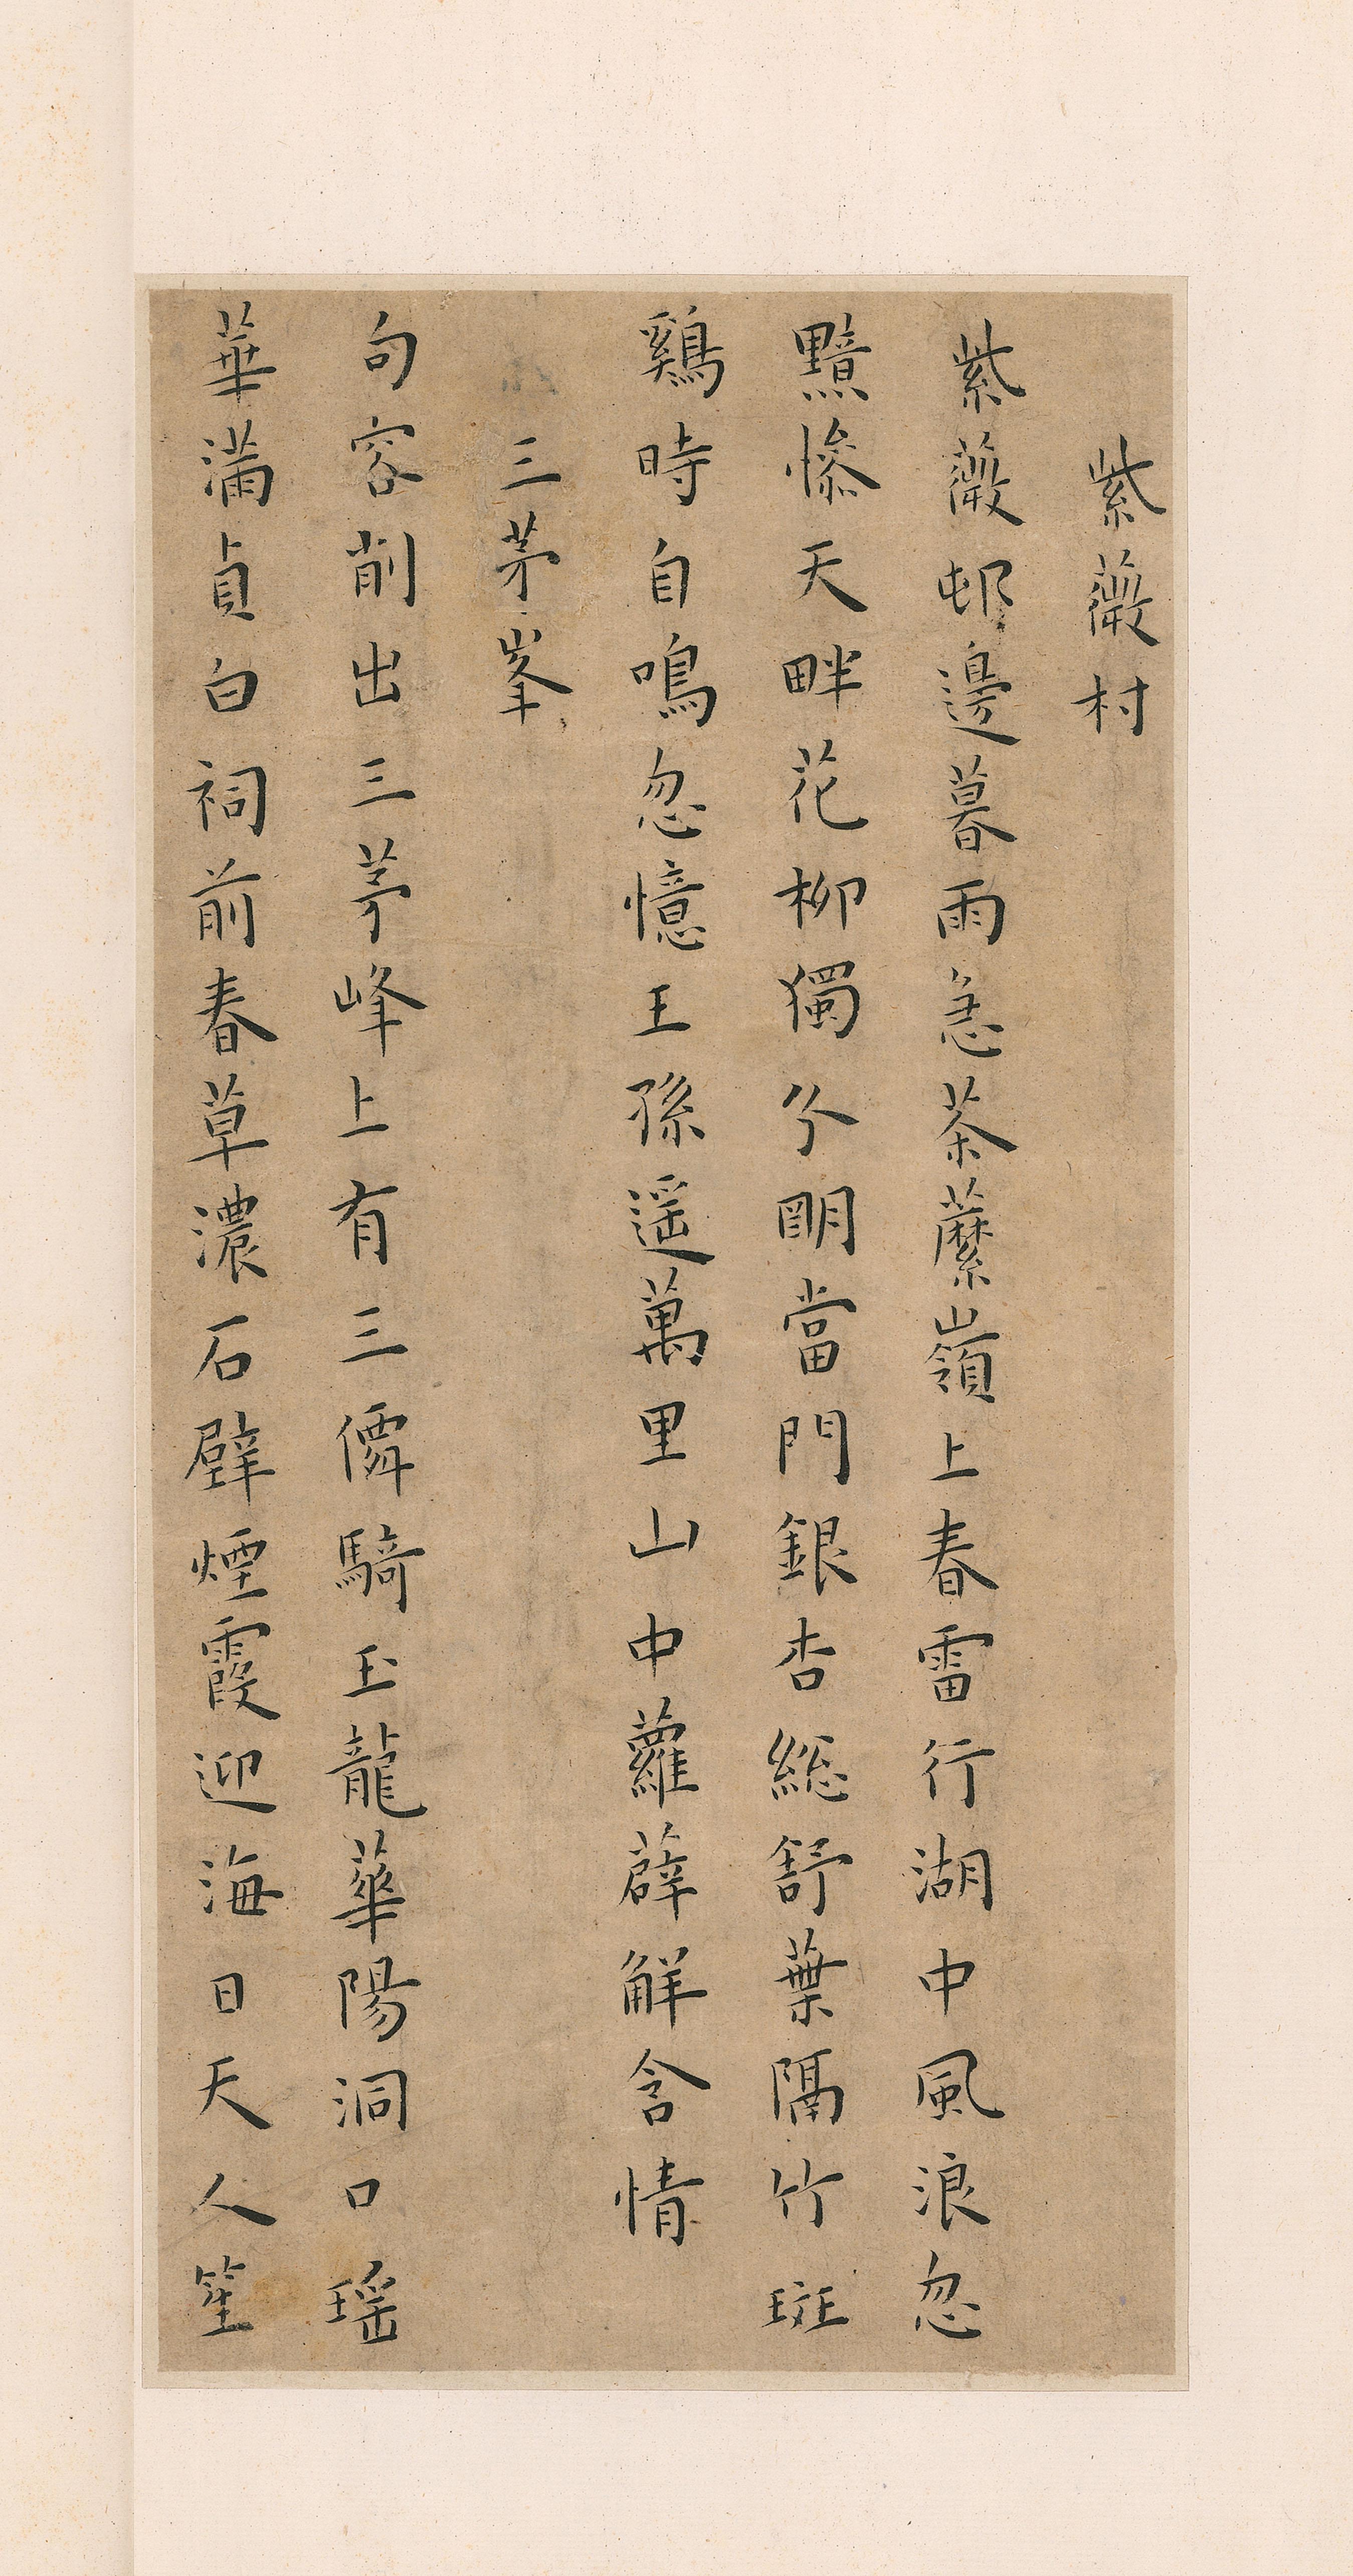 紫薇村
紫薇邨邊暮雨急荼蘼嶺上春雷行湖中風浪忽
黯慘天畔花柳獨分朙當門銀杏總舒葉隔竹斑
鷄時自鳴忽憶王孫遥萬里山中蘿薜解含情
三茅峯
句容削出三茅峰上有三僊騎玉龍華陽洞口瑶
華滿貞白祠前春草濃石壁煙霞迎海日天人笙